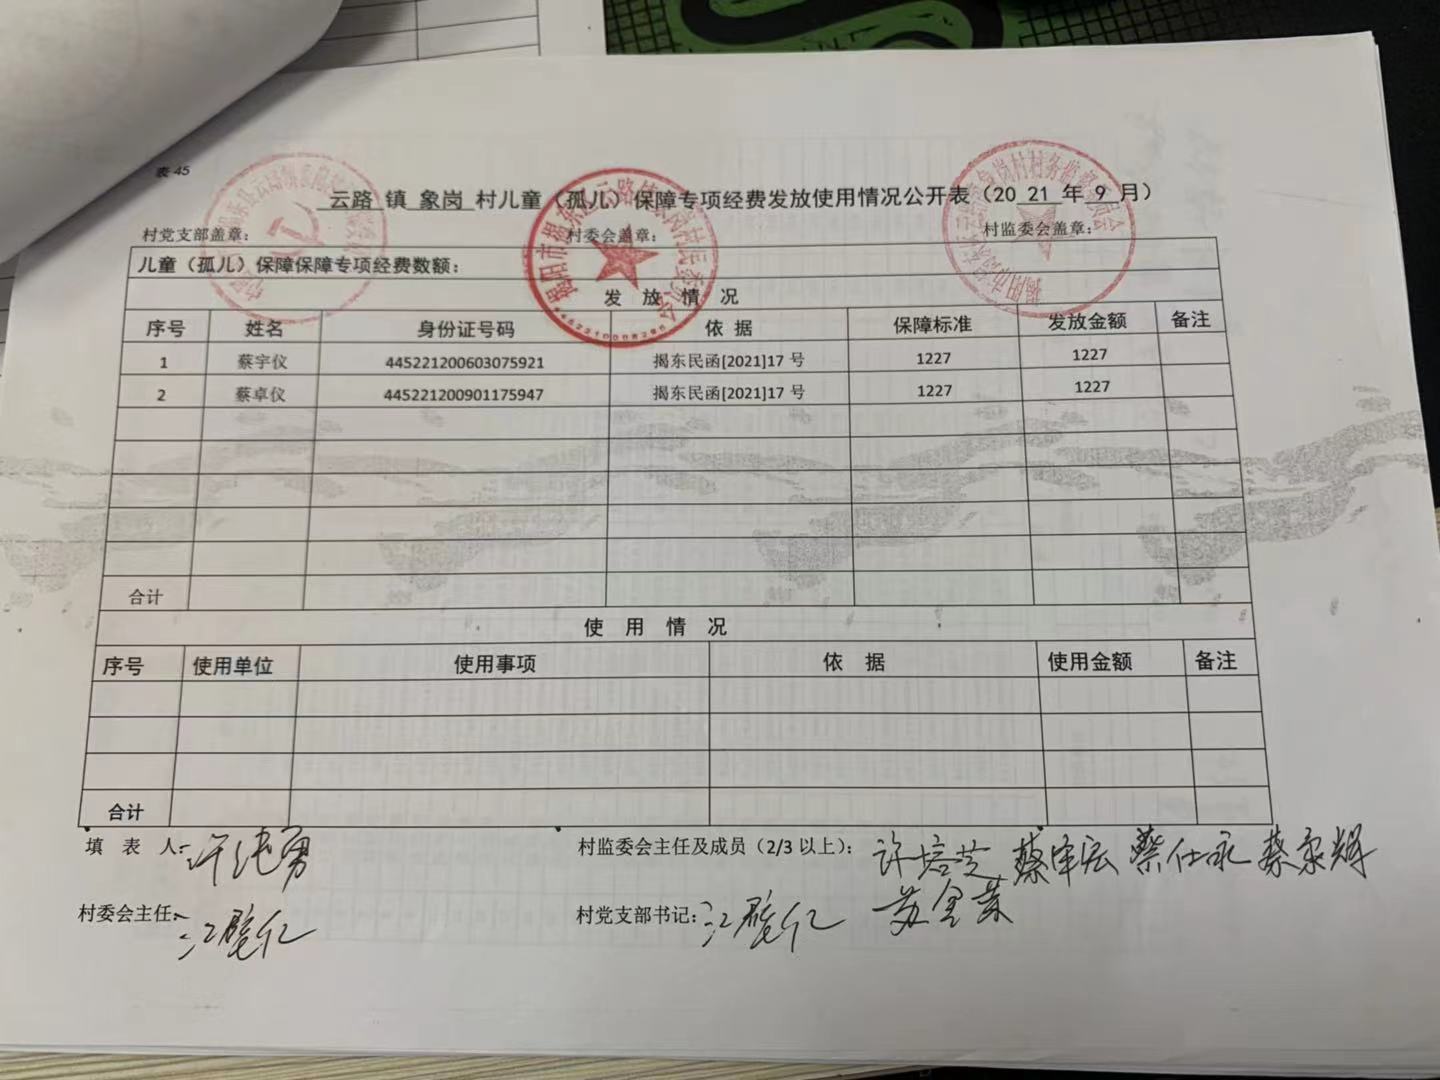 表 45
云路 镇 象岗 村儿童（孤儿）保障专项经费发放使用情况公开表（20 21 年 9 月）
村党支部盖章： 村委会盖章： 村监委会盖章：
儿童（孤儿）保障保障专项经费数额：
发 放 情 况
序号 姓名 身份证号码 依 据 保障标准 发放金额 备注
1 蔡宇仪 445221200603075921 揭东民函[2021]17 号 1227 1227
2 蔡卓仪 445221200901175947 揭东民函[2021]17 号 1227 1227
合计
使 用 情 况
序号 使用单位 使用事项 依 据 使用金额 备注
合计
填 表 人： 村监委会主任及成员（2/3 以上）： 许培芝 蔡仕永 蔡永辉
村委会主任： 村党支部书记：